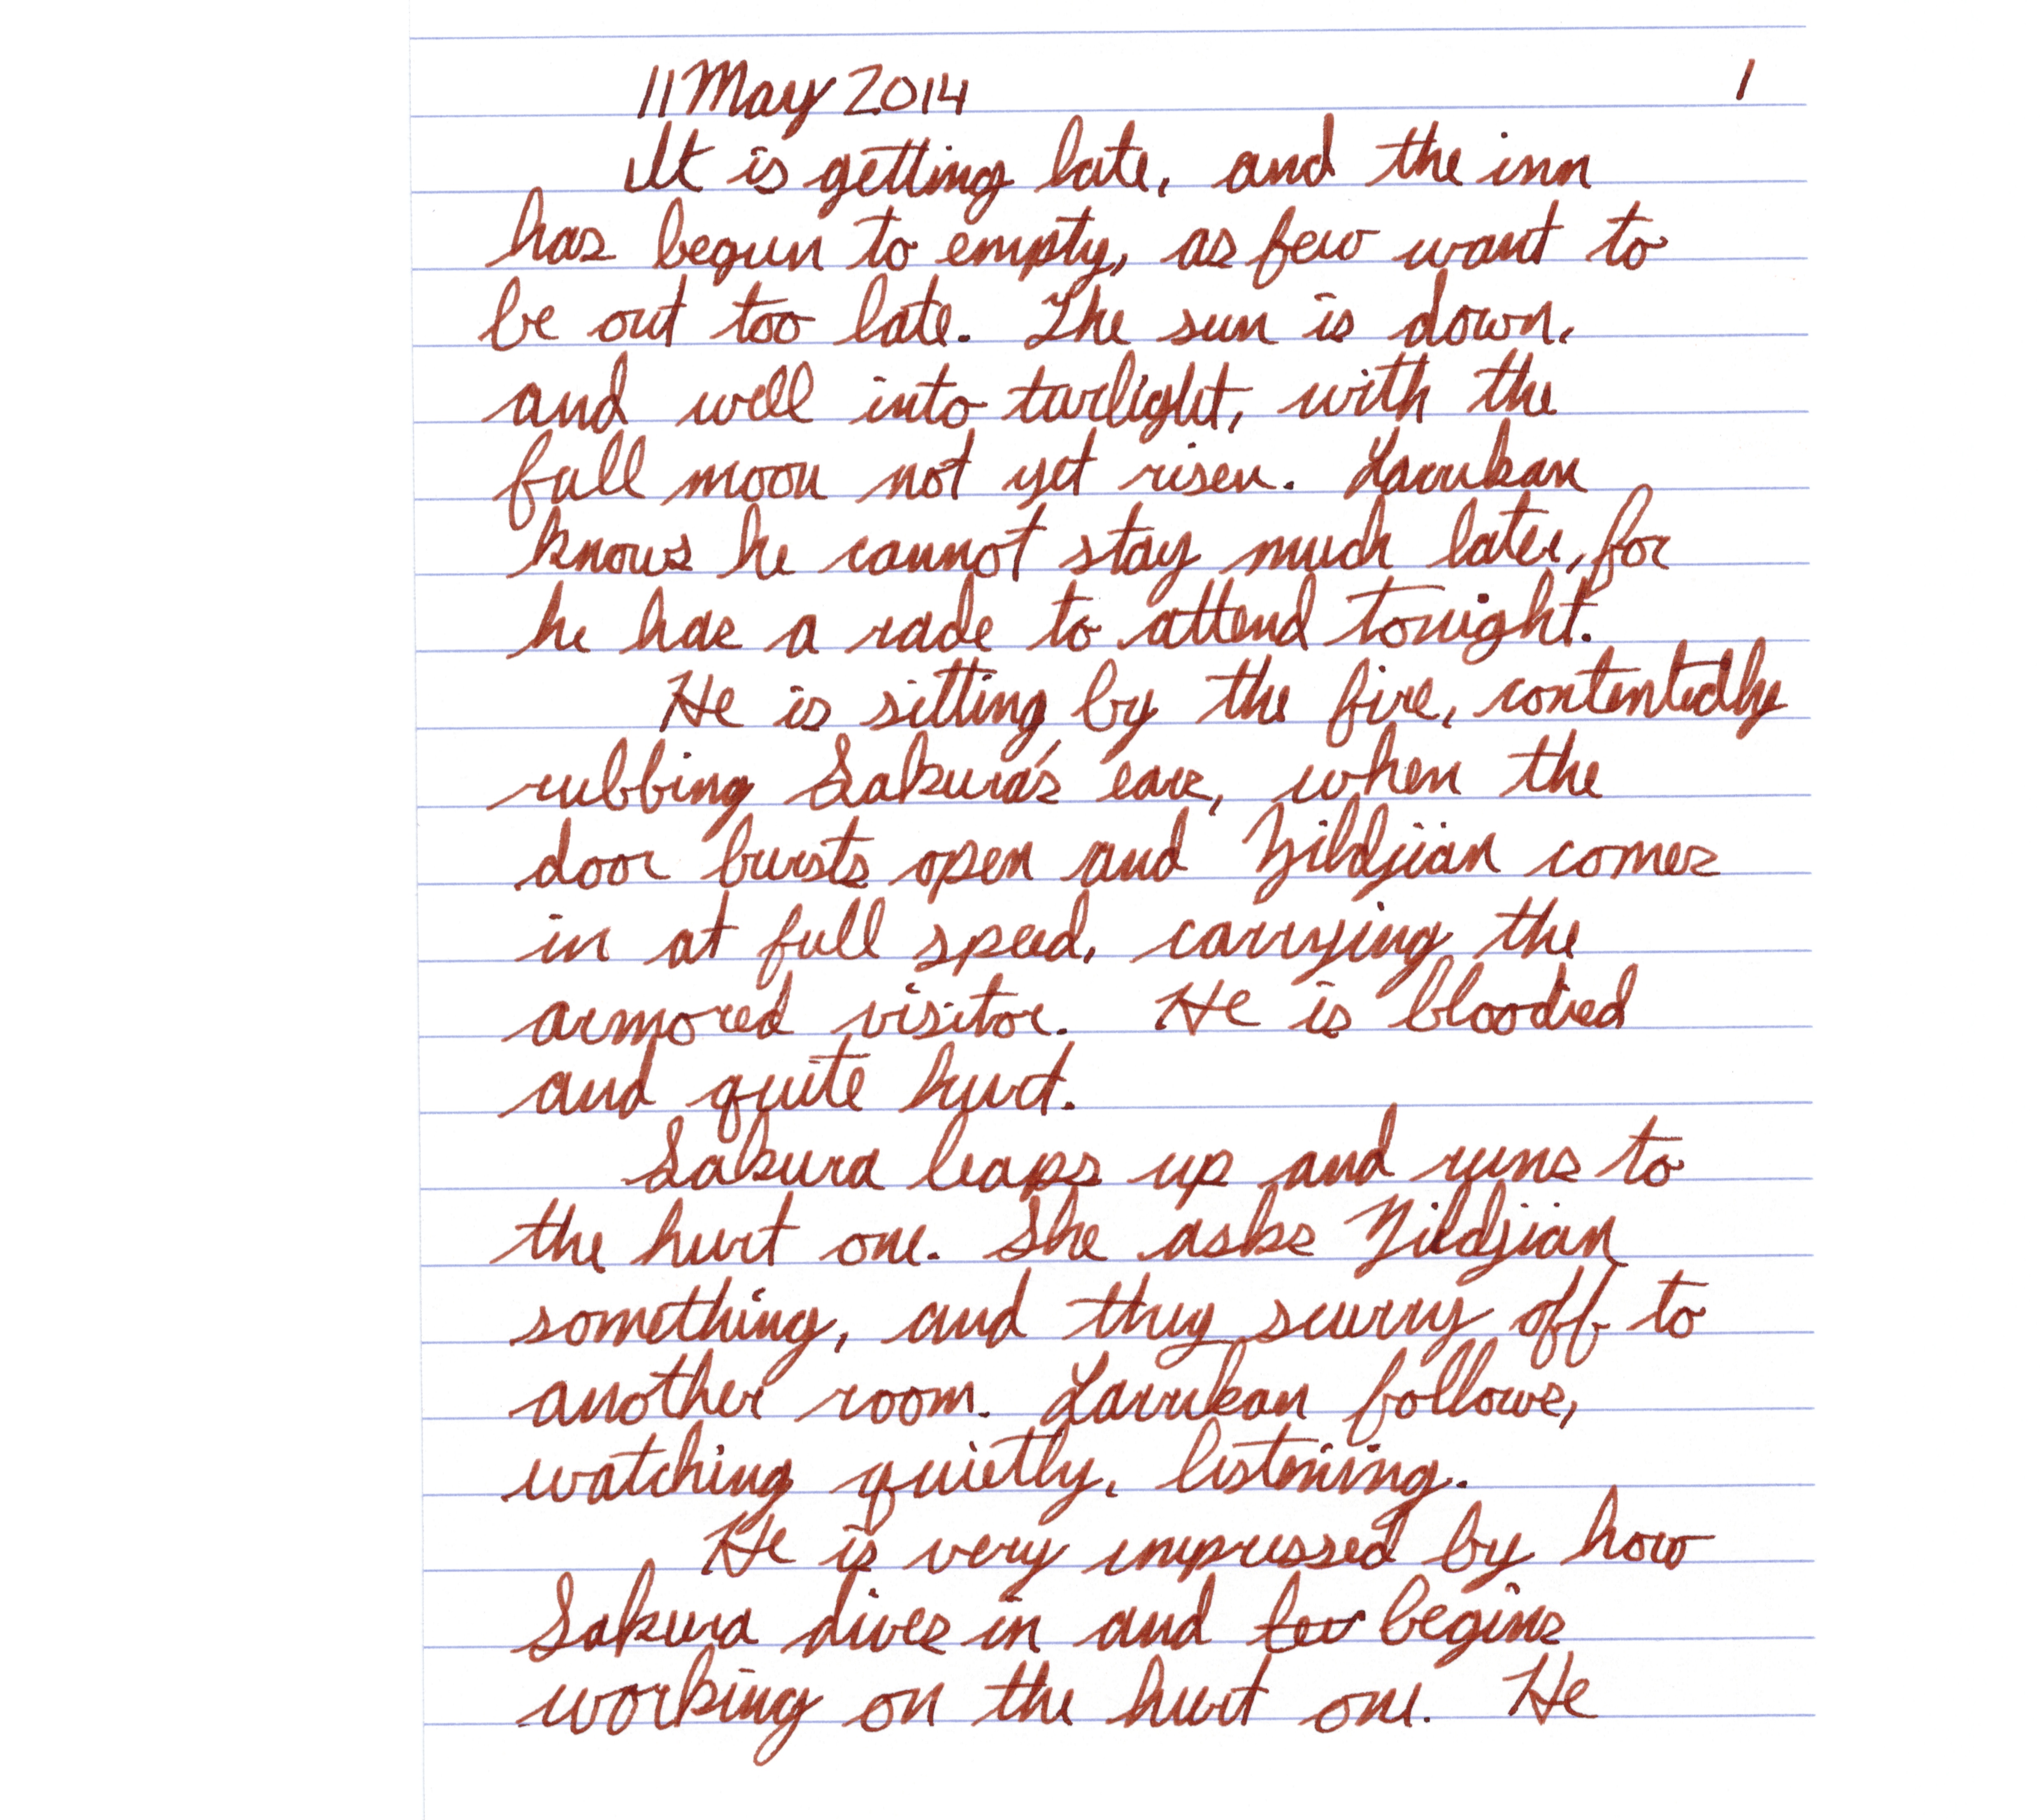 11 May 2014 1
It is getting late, and the inn
has begun to empty, as few want to
be out too late. The sun is down,
and well into twilight, with the
full moon not yet risen. Larukan
knows he cannot stay much later, for
he has a rade to attend tonight.
He is sitting by the fire, contentedly
rubbing Sakura's ears, when the
door bursts open and Zildjian comes
in at full speed, carrying the
armored visitor. He is bloodied
and quite hurt.
Sakura leaps up and runs to
the hurt one. She asks Zildjian
something, and they scurry off to
another room. Larukan follows,
watching quietly, listening.
He is very impressed by how
Sakura dives in and begins
working on the hurt one. He